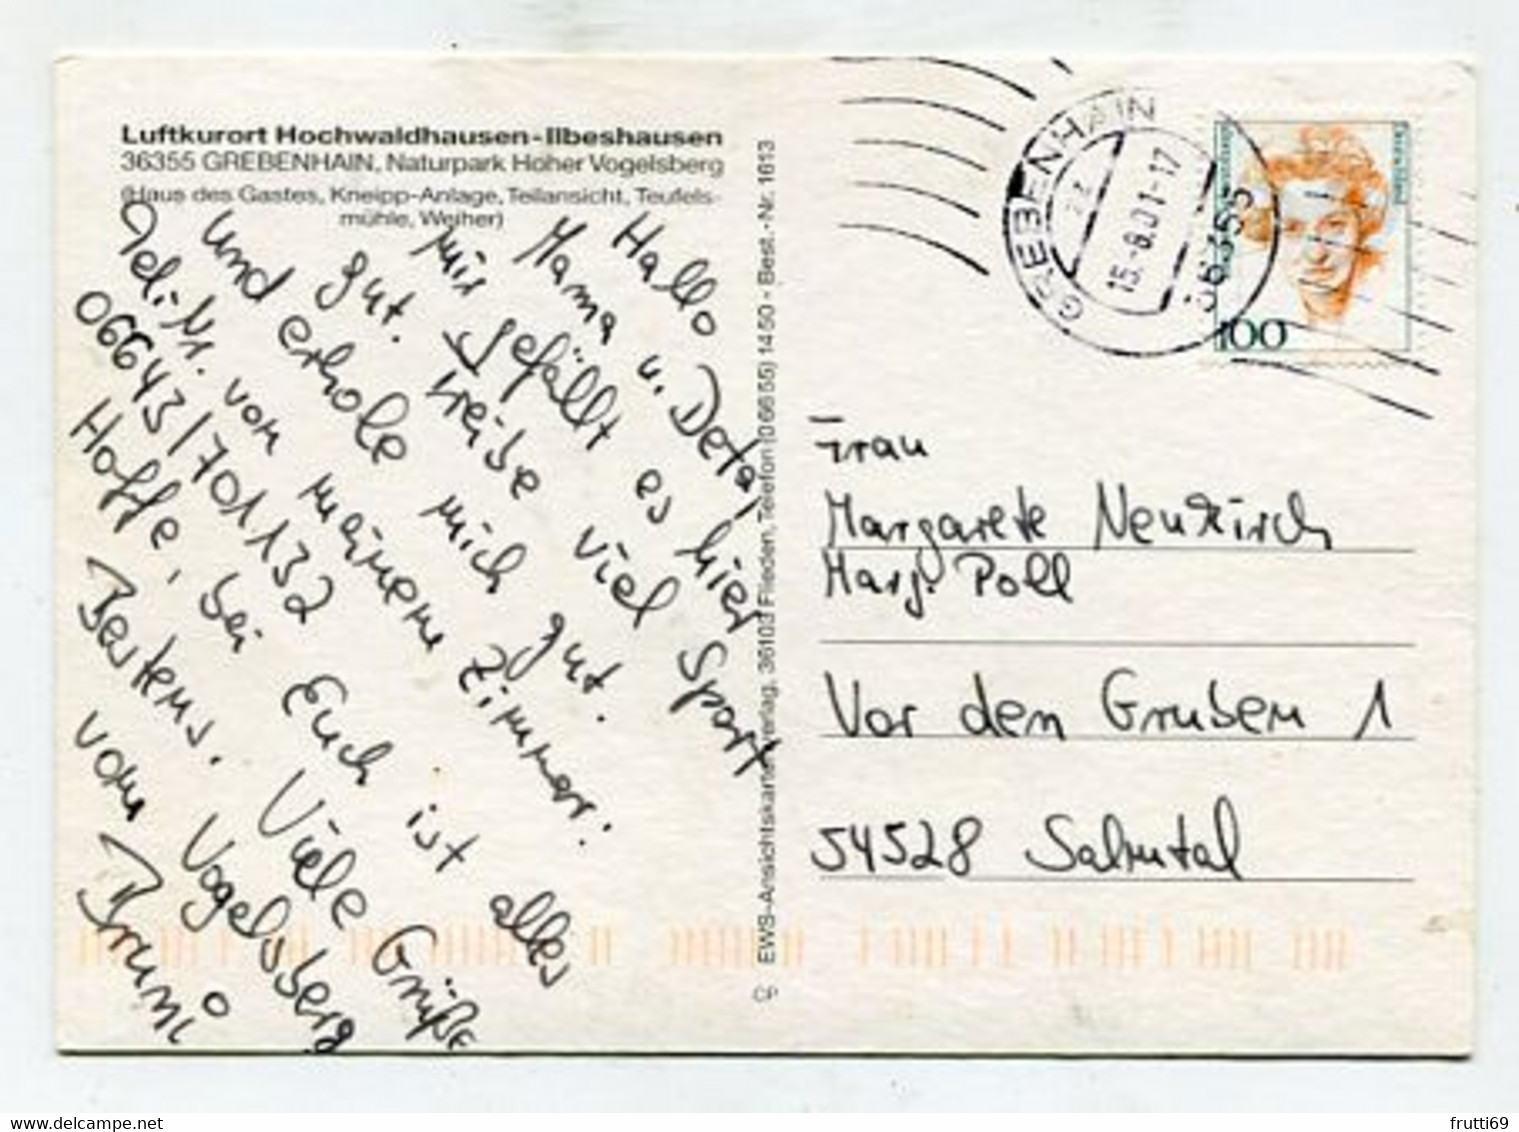 Luftkurort Hochwaldhausen-Ilbeshausen
36355 GREBENHAIN, Naturpark Hoher Vogelsberg
(Haus des Gastes, Kneipp-Anlage, Teilansicht, Teufels-
mühle, Weiher)
Hallo
Mama u. Deta,
mir gefällt es hier
gut. treibe viel Sport
und erhole mich gut.
Tel. Nr. von meinem Zimmer:
06643/701132
Hoffe, bei Euch ist alles
Bestens. Viele Grüße
vom Vogelsberg
Bruni
EWS-Ansichtskartenverlag, 36103 Flieden, Telefon (06655) 1450 - Best.-Nr. 1613
CP
GREBENHAIN
zz
15.-8.01-17
36355
100
Frau
Margarete Neukirch
Marg. Poll
Vor den Gruben 1
54528 Salmtal
frutti69